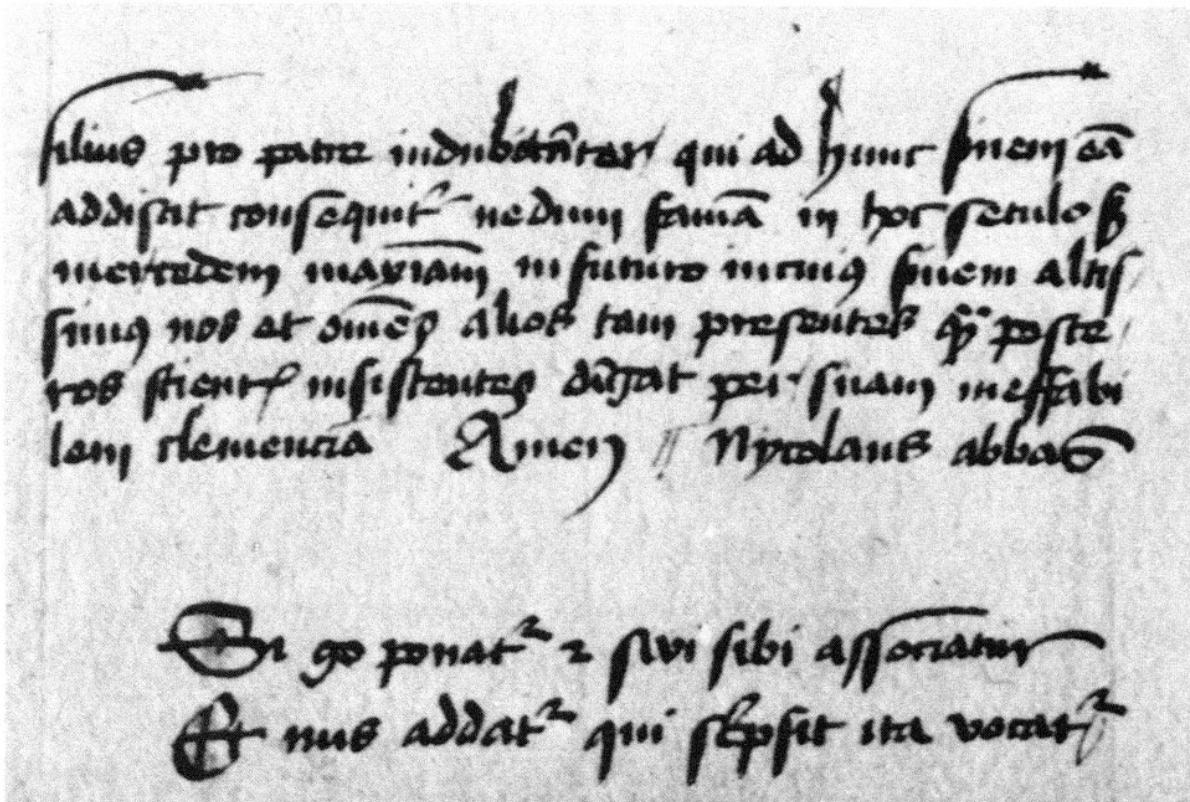 filius pro patre indubitãter qui ad hunc finem eã
addiscit consequit᷑ nedum famã in hoc seculo s̃
mercedem maxiam̃ in futuro in cuiꝯ finem altis
simꝯ nos et om̃es alios tam presentes q̃ poste
ros scient insistentes dir̃gat per suam ineffabi
lem clemenciã Amen Nycolaus abbas
Si go ponat᷑ ⁊ sivi sibi associatur
Et nus addat᷑ qui sc̃psit ita vocat᷑